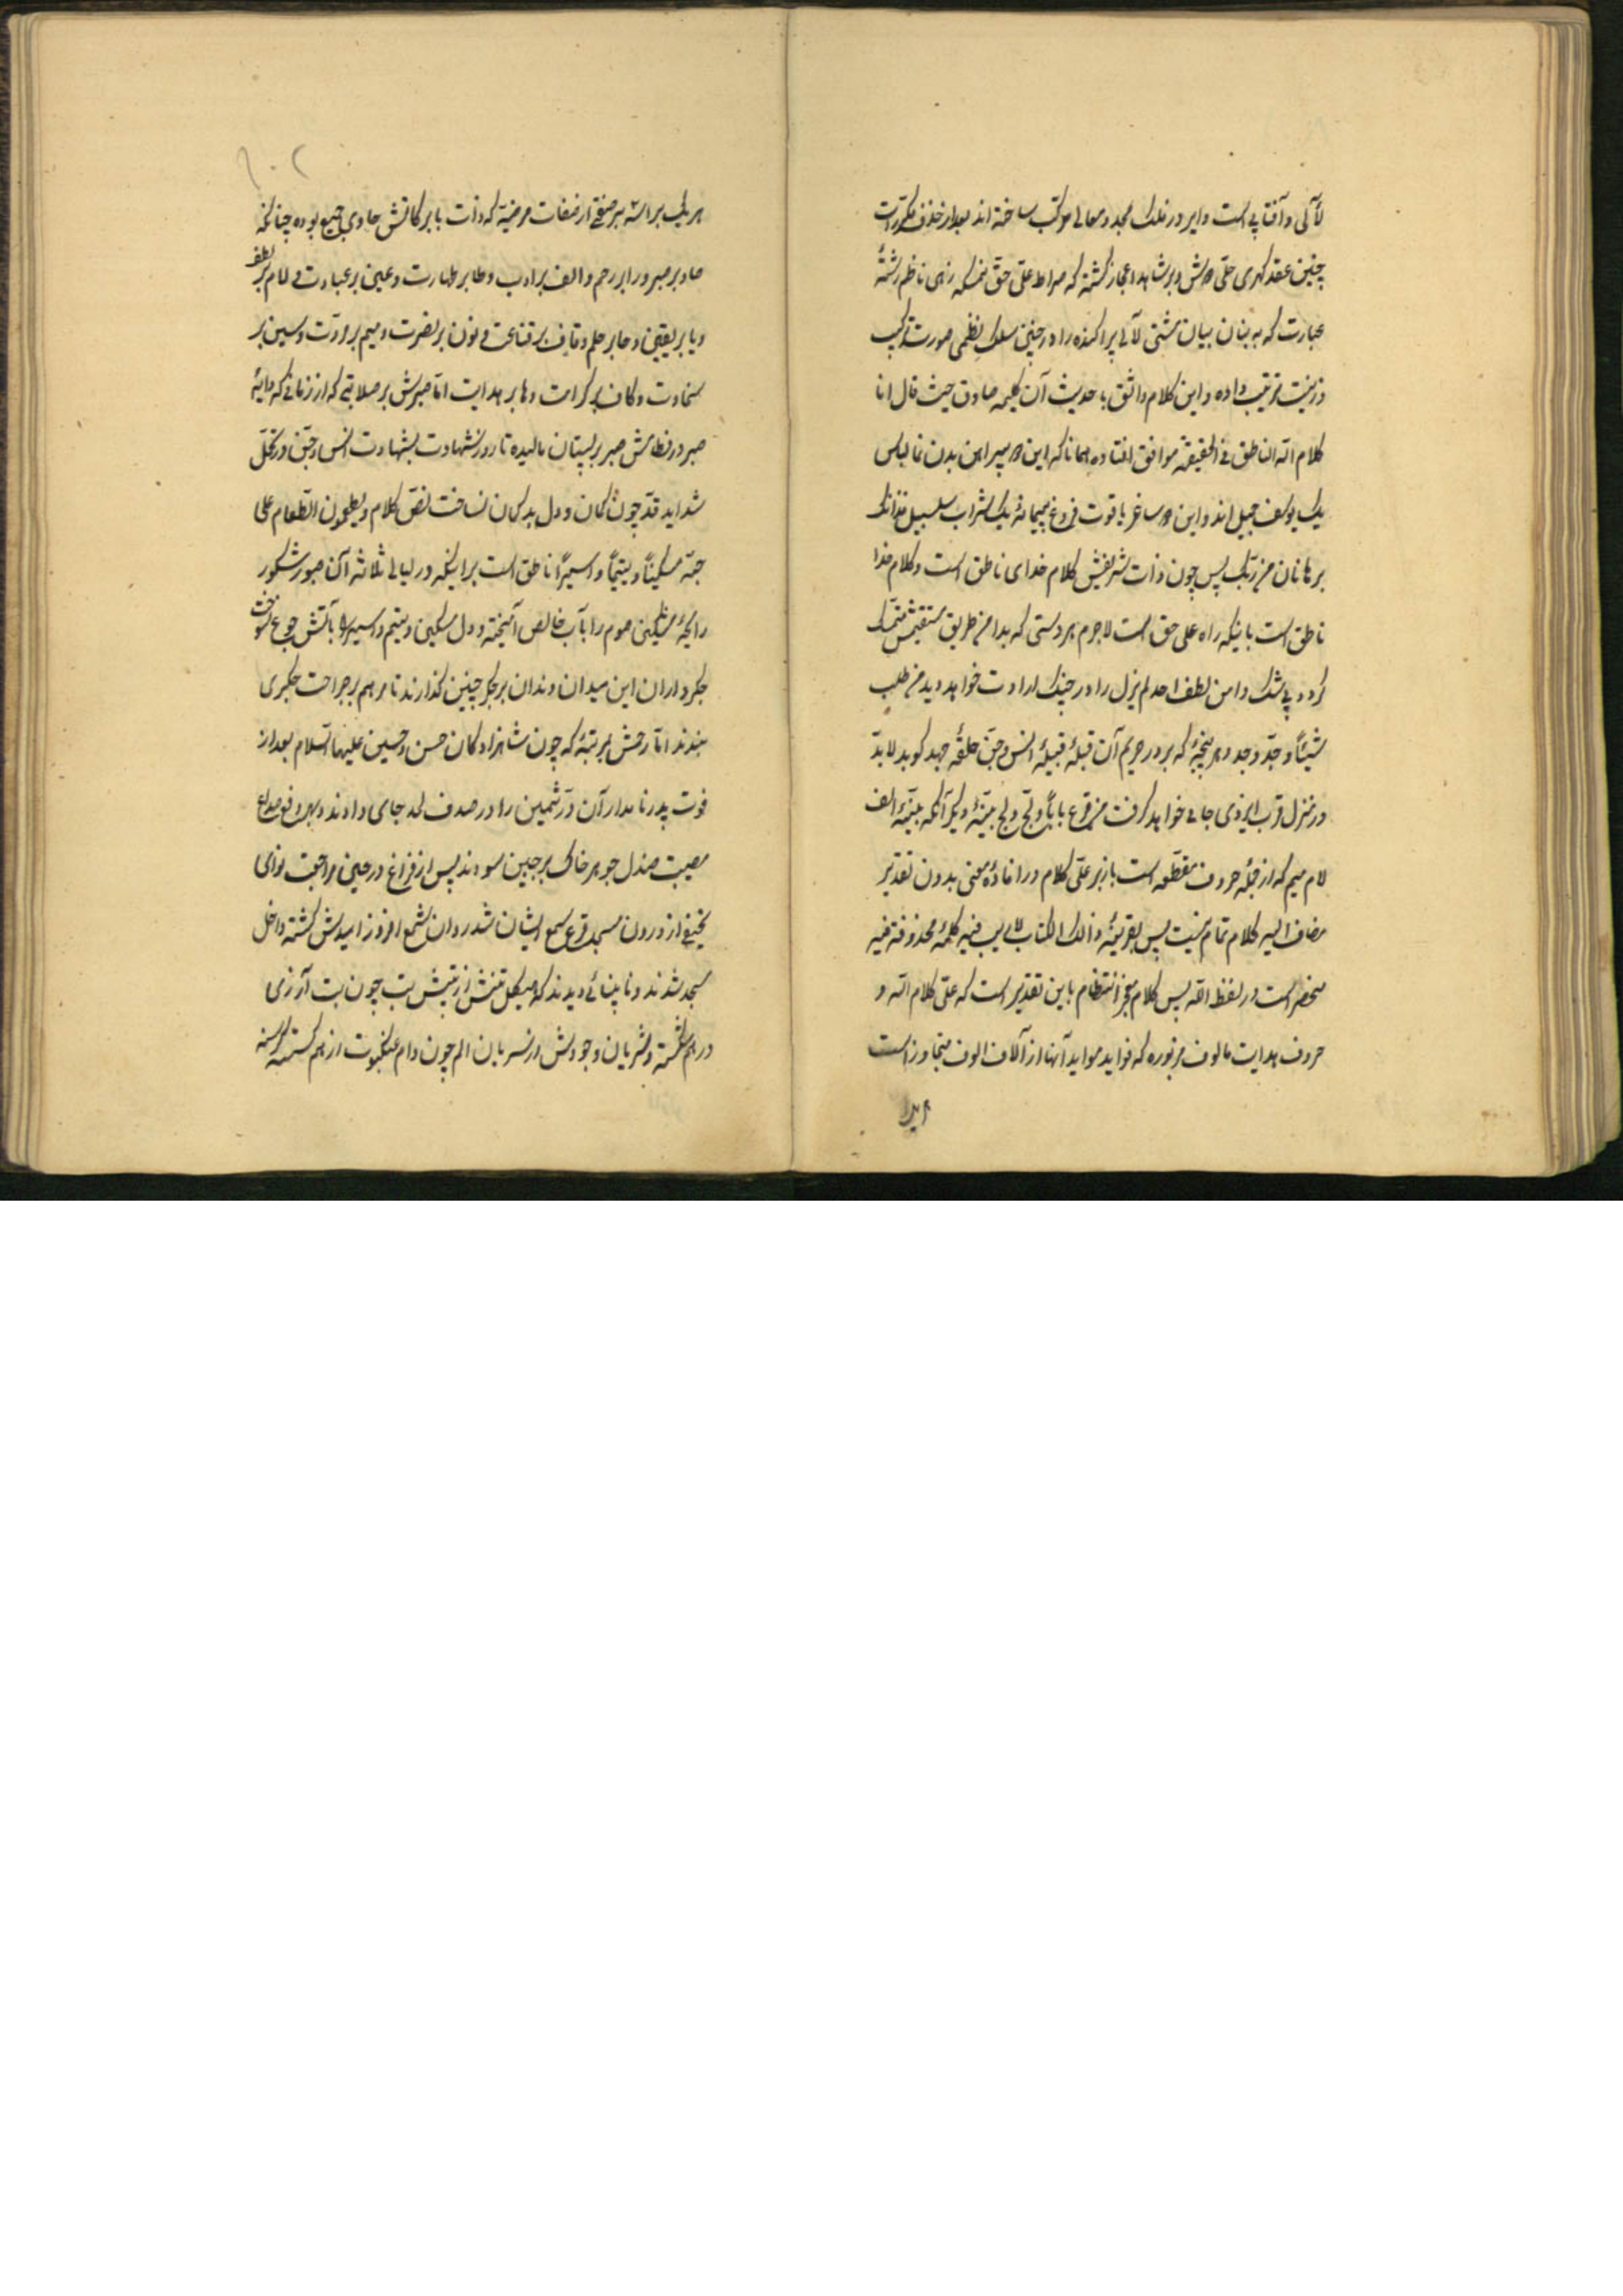 لآلی و آفتابی است دایر در فلک مجد و معالی مرکب ساخته اند بعد از حذف مکررات
چنین عقد گهری حلی گردش و بر شاهد اعجاز گشته که صراط علی حق نمسکه زهی ناظم رشتهٔ
عبارت که به بنان بیان مشتی لآلی پراکنده را در چنین سلک نظمی صورت ترکیب
و زینت ترتیب داده و این کلام واثق با حدیث آن کلیم صادق حیث قال انا
کلام الله الناطق فی الحقیقه موافق افتاده همانا که این دو پیراهن بدن نما لباس
یک یوسف جمیل اند و این دو ساغر یاقوت فروغ پیمانهٔ یک شراب سلسبیل فذانک
برهانان من ربک پس چون ذات شریفش کلام خدای ناطق است و کلام خدا
ناطق است باینکه راه علی حق است لاجرم هر دستی که بدامن طریق مستقیمش متمسک
گردد بی شک دامن لطف احد لم یزل را در چنگ ارادت خواهد دید من طلب
شیئاً و جدّ وجد و هر پنجهٔ که بر در حریم آن قبلهٔ قبیلهٔ انس و جن حلقهٔ جهد کوبد لابدّ
در منزل قرب ایزدی جای خواهد گرفت من قرع باباً و لجّ ولج تتمّهٔ دیگر آنکه تتمّهٔ الف
لام میم که از جمله حروف مقطعه است باز بر علی کلام و در افادهٔ معنی بدون تقدیر
مضاف الیه کلام تمام نیست پس بقرینهٔ ذالک الکتاب لا ریب فیه کلمهٔ محذوفهٔ فیه
منحصر است در لفظ الله پس کلام معجز انتظام باین تقدیر است که علی کلام الله و
حروف هدایت مالوف مزبوره که فواید مواید آنها از آلاف الوف متجاوز است
هر یک
۱۰۲
هر یک براسه بر صفتی از صفات مرضیه که ذات با برکاتش حاوی جمیع بوده چنانکه
صاد بر صبر و را بر رحم و الف بر ادب و طا بر طهارت و عین بر عبادت و لام بر لطف
و یا بر یقین و حا بر حلم و قاف بر قناعت و نون بر نصرت و میم بر مروّت و سین بر
سخاوت و کاف بر کرامت و ها بر هدایت اما صبرش بر صلابتی که از زمانی که دایهٔ
صبر در فطامش صبر بر پستان مالیده تا روز شهادت بشهادت انس و جن در تحمل
شداید قدّ چون کمان و دل بد کمان نساخت نص کلام و یطعمون الطعام علی
حبه مسکیناً و یتیماً و اسیراً ناطق است بر اینکه در لیالی ثلاثه آن صبور شکور
رایحهٔ مشکین صوم را بآب خالص آمیخته و دل مسکین و یتیم و اسیر را بآتش جوع سوخت
جگر داران این میدان دندان بر جگر چنین گذارند تا مرهم بر جراحت جگری
بندند اما رحمش بمرتبهٔ که چون شاهزادگان حسن و حسین علیهما السلام بعد از
فوت پدر نامدار آن درّ ثمین را در صدف لحد جای دادند و بهر دفع صداع
مصیبت صندل جوهر خاک بر جبین سودند پس از فراغ در حین مراجعت نوای
نحیفی از درون مسجد قرع سمع ایشان شد روان شمع افروز امیدش گشته داخل
مسجد شدند و نابینائی دیدند که هیکل تنش از تپش تب چون بت آزری
در هم شکسته و شریان وجودش از سریان الم چون دام عنکبوت از هم گسسته گرسنه